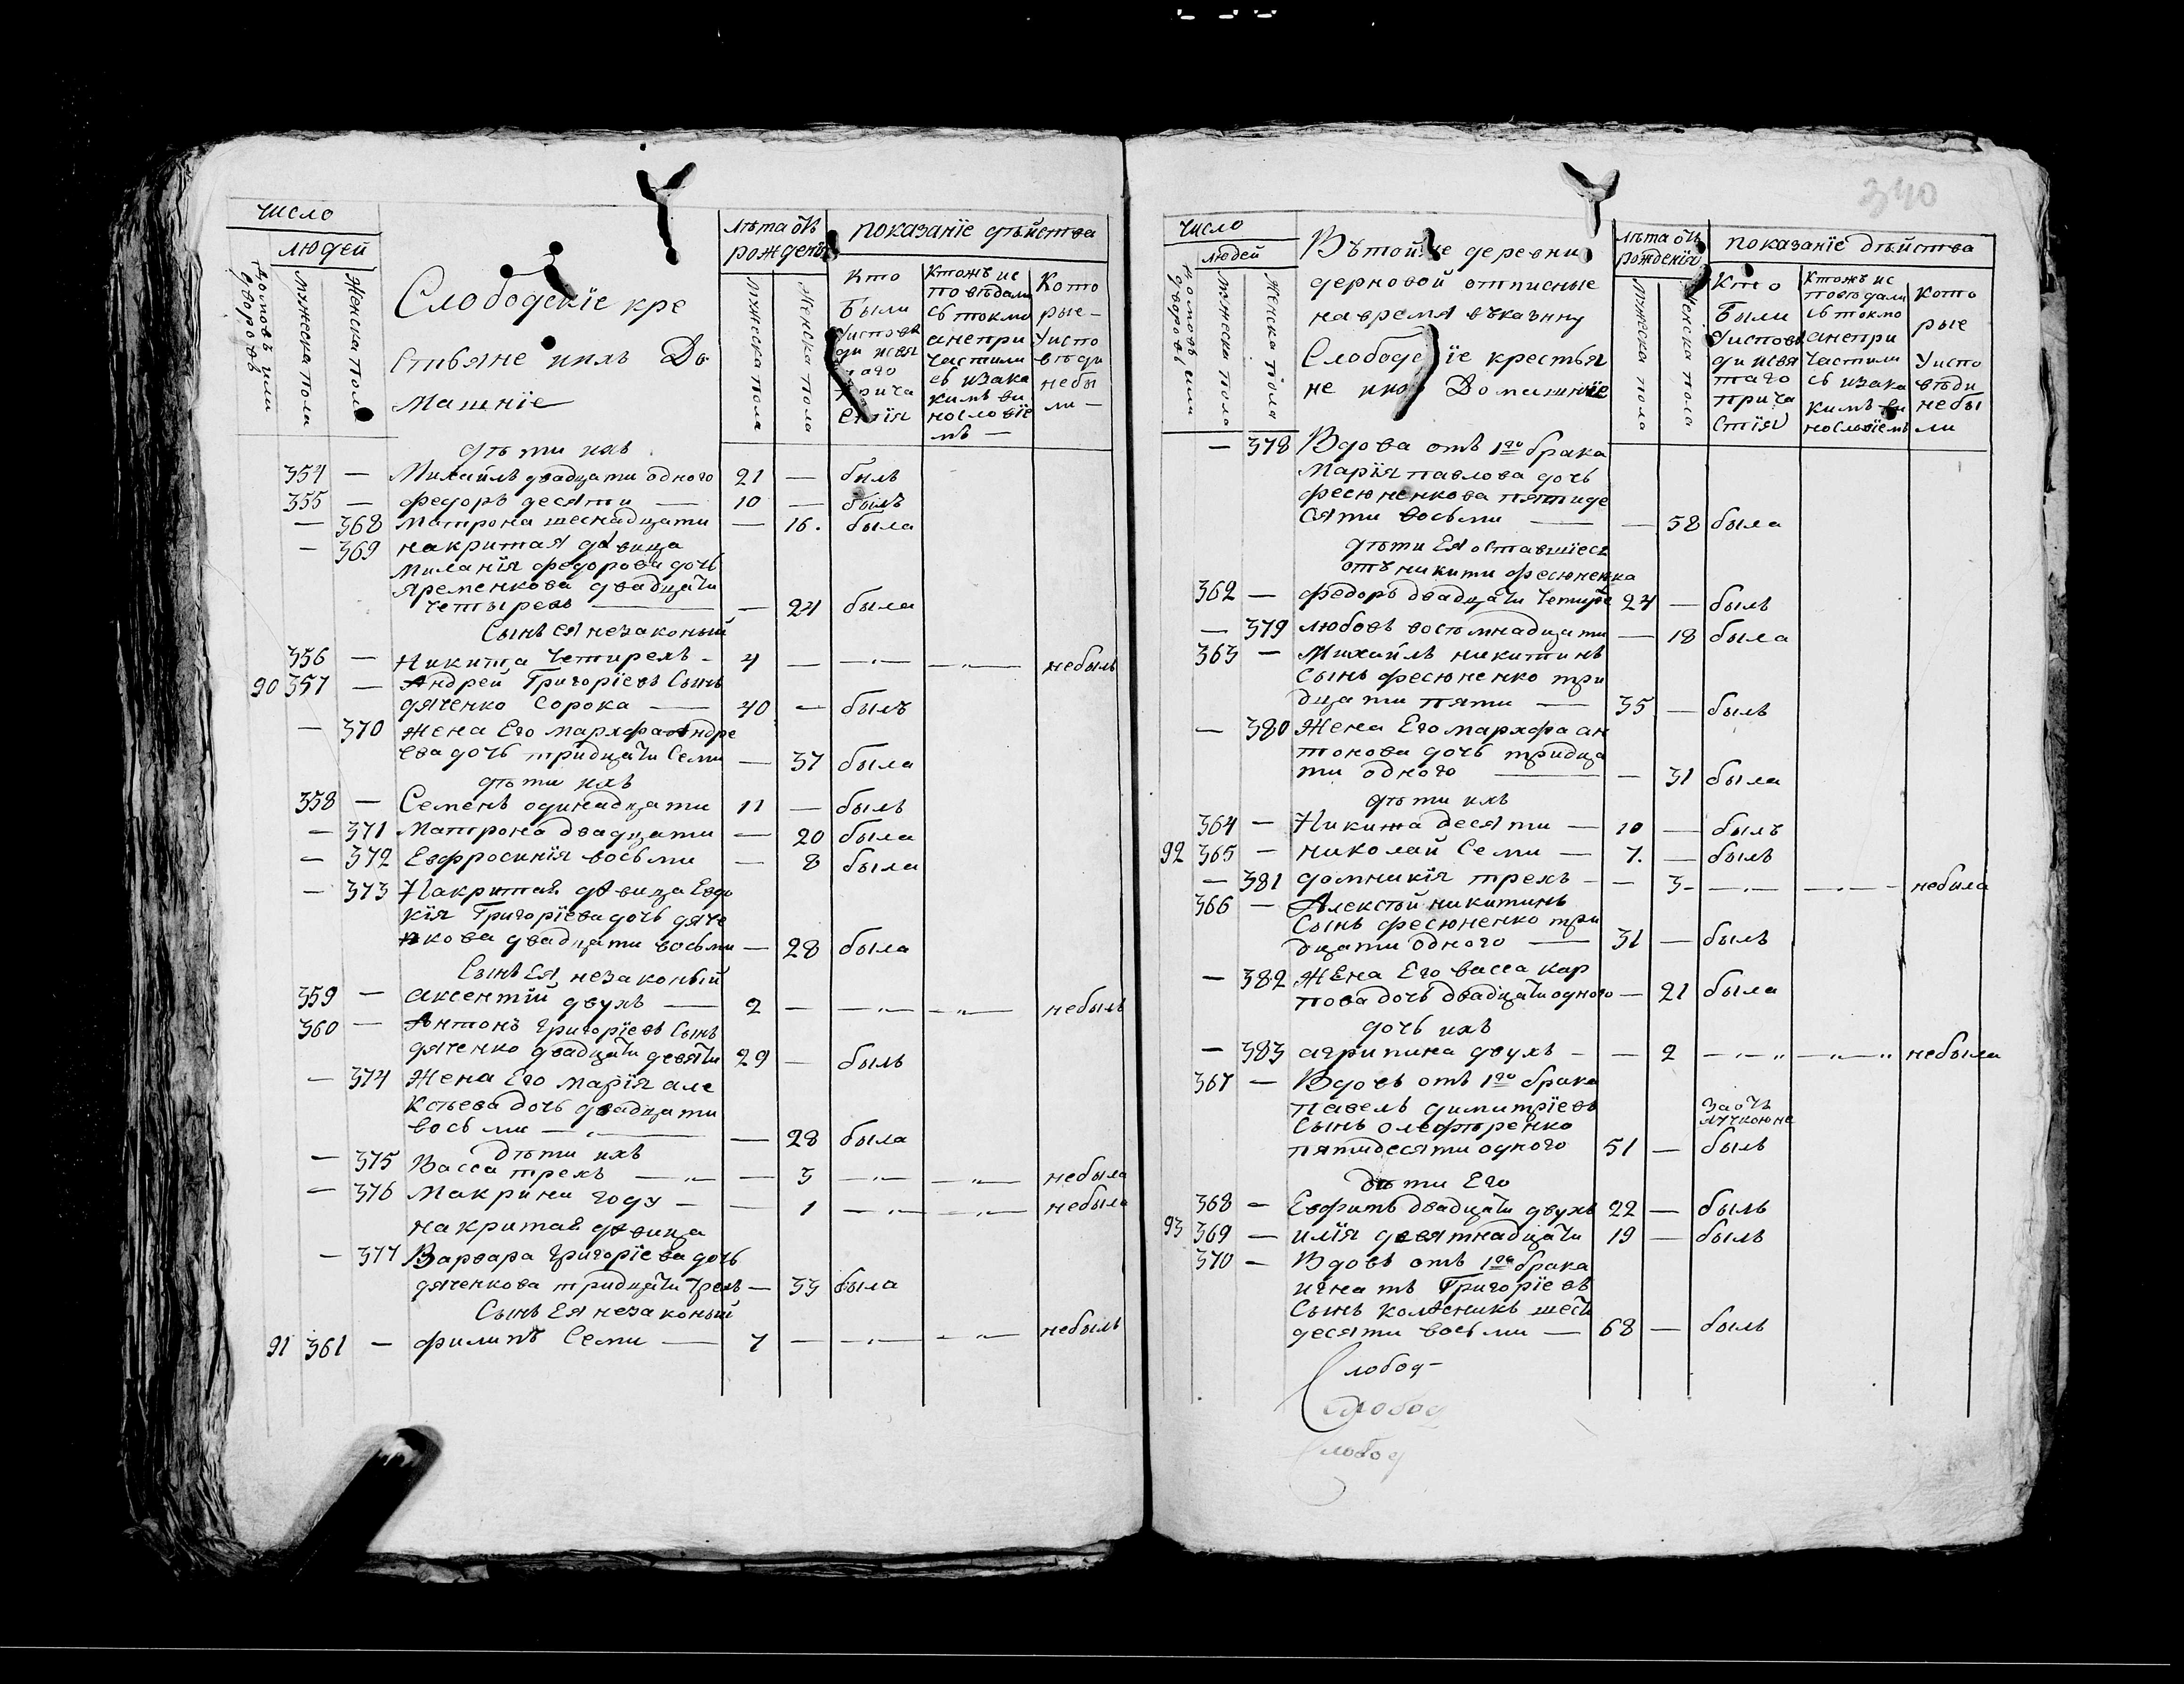 число
людей
домовъ или
дворовъ
мужеска пола
женска пола
Слободскіе кре
стьяне ихъ До
машніе
лѣта отъ
рожденія
мужеска пола
женска пола
показаніе дѣйства
Кто
были
уиспове
ди исвя
таго
прича
стія
Ктожъ ис
повѣдали
сь токмо
анепри
частили
сь изака
кимъ ви
нословіе
мъ —
Кото
рые —
уиспо
вѣди
небы
ли —
дѣти ихъ
354 — Михайлъ двадцати одного 21 — былъ
355 — федоръ десяти — 10 — былъ
— 368 Матрона шеснадцати — 16. была
— 369 накритая дѣвица
Миланія федорова дочь
яременкова двадцати
четырехъ — — 24 была
Сынъ ея незаконый
356 — Никита четирехъ — 4 — —„— —„— небылъ
90 357 — Андрей Григоріевъ Сынъ
дяченко Сорока — 40 — былъ
— 370 жена Его мархфа Андре
ева дочь тридцати Семи — 37 была
дѣти ихъ
358 — Семенъ одинадцати 11 — былъ
— 371 Матрона двадцати — 20 была
— 372 Евфросинія восьми — 8 была
— 373 Накритая дѣвица Евдо
кія Григоріева дочь дяче
нкова двадцати восьми — 28 была
Сынъ Ея незаконый
359 — аксентій двухъ — 2 — —„— —„— небылъ
360 — Антонъ григоріевъ Сынъ
дяченко двадцати девяти 29 — былъ
— 374 Жена Его марія але
ксѣева дочь двадцати
восьми —„— — 28 была
дѣти ихъ
— 375 Васса трехъ —„— — 3 —„— —„— небыла
— 376 Макрини году — — 1 —„— —„— небыла
накритая дѣвица
— 377 Варвара григоріева дочь
дяченкова тридцати трехъ — 33 была
Сынъ Ея незаконый
91 361 — филипъ Семи — 7 — —„— —„— небылъ
340
число
людей
домовъ или
дворовъ
мужеска пола
женска пола
Вѣтойже деревни
дерновой отписные
навремя вѣказну
Слободскіе крестья
не ихъ Домашніе
лѣта отъ
рожденія
мужеска пола
женска пола
показаніе дѣйства
Кто
Были
уиспове
ди исвя
таго
прича
стія
Ктожъ ис
повѣдали
сь токмо
анепри
частили
сь изака
кимъ ви
нословіемъ
кото
рые
уиспо
вѣди
небы
ли
— 378 Вдова отъ 1го брака
Марія павлова дочь
фесюненкова пятиде
сяти восьми — — 58 была
дѣти Ея оставшіесь
отъ никити фесюненка
362 — федоръ двадцати четире 24 — былъ
— 379 любовъ востмнадцати — 18 была
363 — Михайлъ никитинъ
Сынъ фесюненко три
дцати пяти — 35 — былъ
— 380 Жена Его мархфа ан
тонова дочь тридца
ти одного — — 31 была
дѣти ихъ
364 — Никита десяти — 10 — былъ
92 365 — николай Семи — 7. — былъ
— 381 домникія трехъ — — 3 — —„— —„— небила
366 — Алексѣй никитинъ
Сынъ фесюненко три
дцати одного — 31 — былъ
— 382 Жена Его васса кар
пова дочь двадцати одного — 21 была
дочь ихъ
— 383 агрипина двухъ — — 2 —„—„ —„—„ небыла
367 — Вдовъ отъ 1го брака
павелъ димитріевъ
Сынъ олефиренко
пятидесяти одного 51 — былъ
дѣти Его
368 — Евфимъ двадцати двухъ 22 — былъ
93 369 — илія девятнадцати 19 — былъ
370 — Вдовъ отъ 1го брака
игнатъ Григоріевъ
Сынъ колѣсникъ шести
десяти восьми — 68 — былъ
Слобод—
Слобод
Слобод